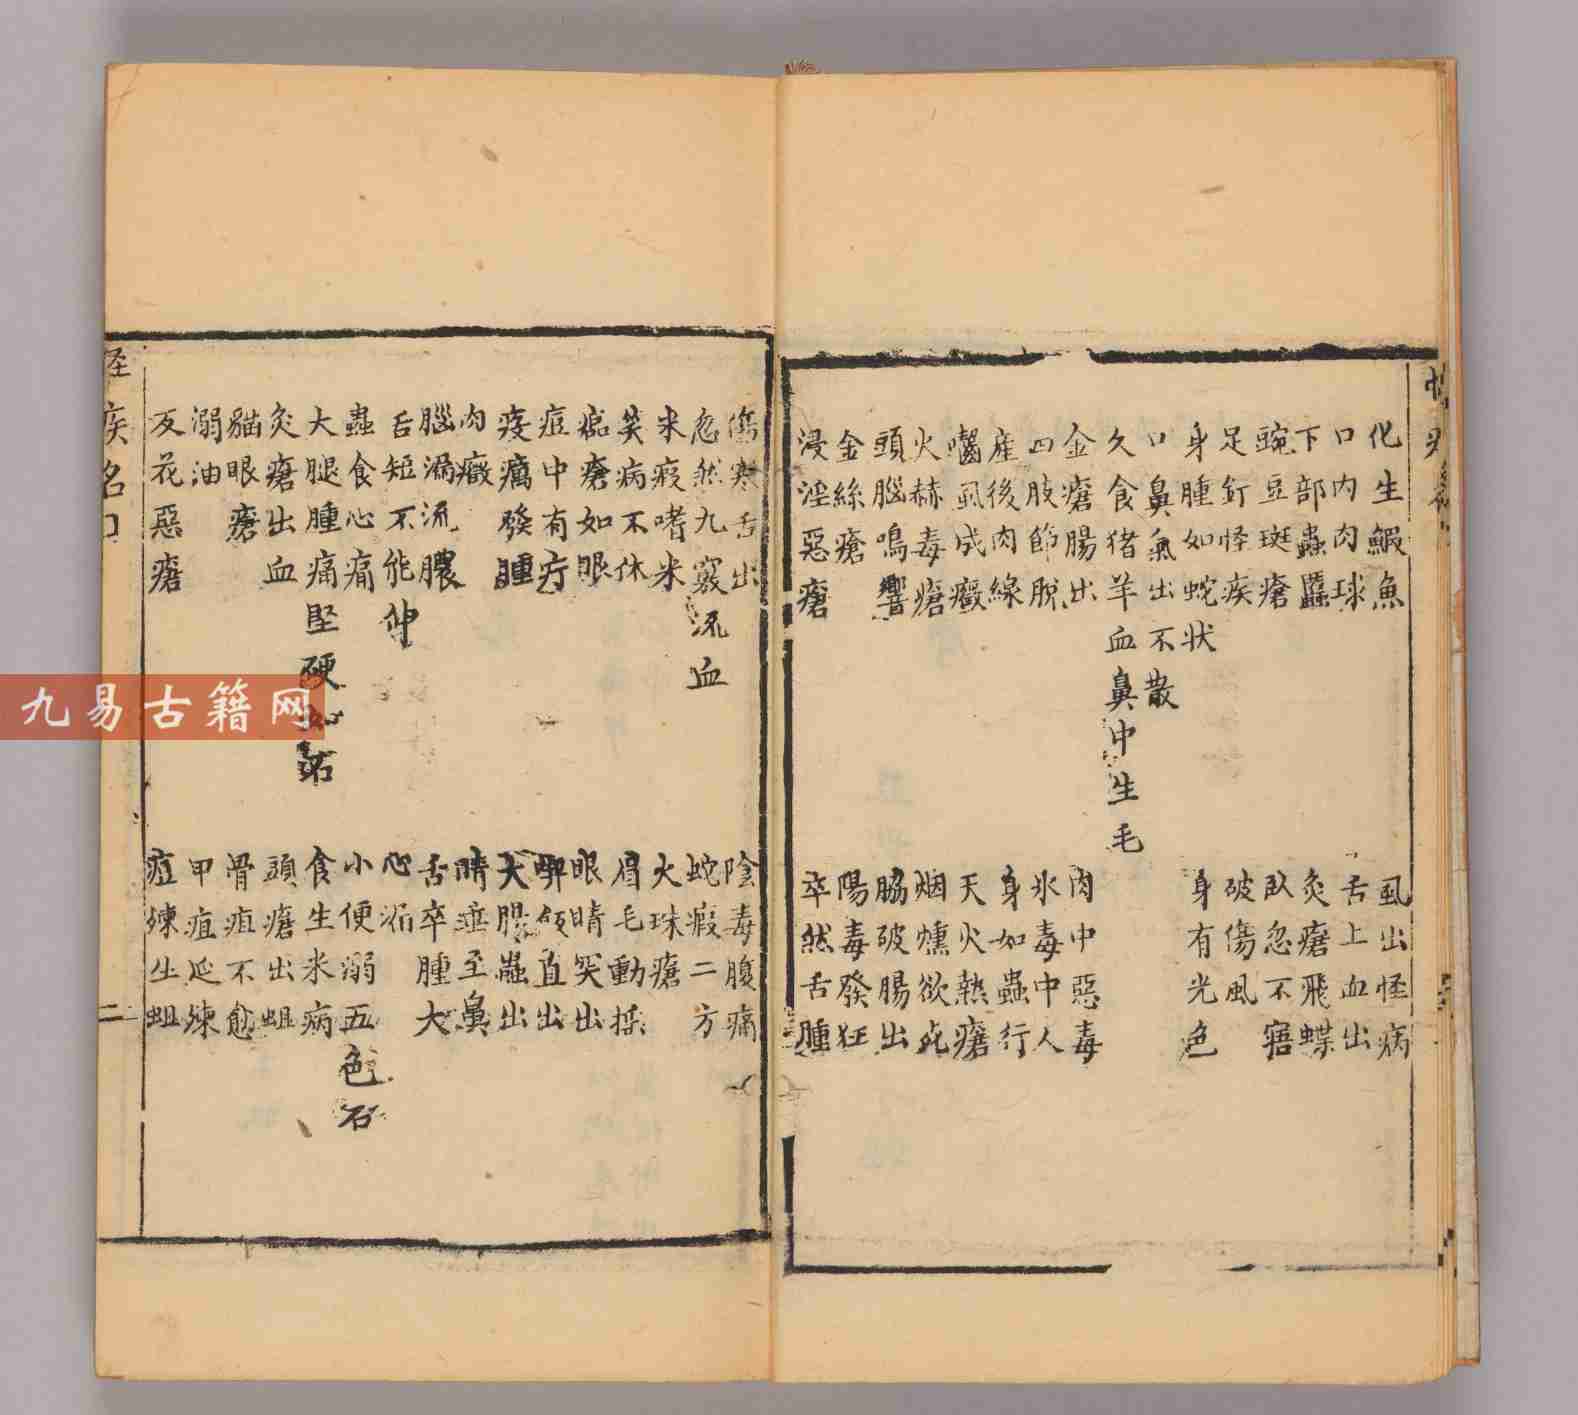 化生鰕魚
口内肉球
下部蟲䘌
豌豆斑瘡
足釘怪疾
身腫如蛇状
口鼻氣出不散
久食猪羊血鼻中生毛
金瘡腸出
四肢節脫
産後肉線
囓虱成癥
火赫毒瘡
頭腦鳴響
金絲瘡
浸淫惡瘡
虱出怪病
舌上血出
灸瘡飛蝶
臥忽不寤
破傷風
身有光色
肉中惡毒
氷毒中人
身如蟲行
天火熱瘡
烟燻欲死
脇破腸出
陽毒發狂
卒然舌腫
傷寒舌出
忽然九竅流血
米疫嗜米
笑病不休
瘡如眼
痘中有疔
疫癘發腫
肉癥
腦漏流膿
舌短不能伸
蟲食心痛
大腿腫痛堅硬如石
灸瘡出血
猫眼瘡
溺油
反花惡瘡
陰毒腹痛
蛇瘕二方
火珠瘡
眉毛動搖
眼睛突出
飯直出
大腸蟲出
睛垂至鼻
舌卒腫大
心漏
小便溺五色石
食生米病
頭瘡出蛆
骨疽不愈
甲疽延
痘生蛆
疾名
二
九易古籍网